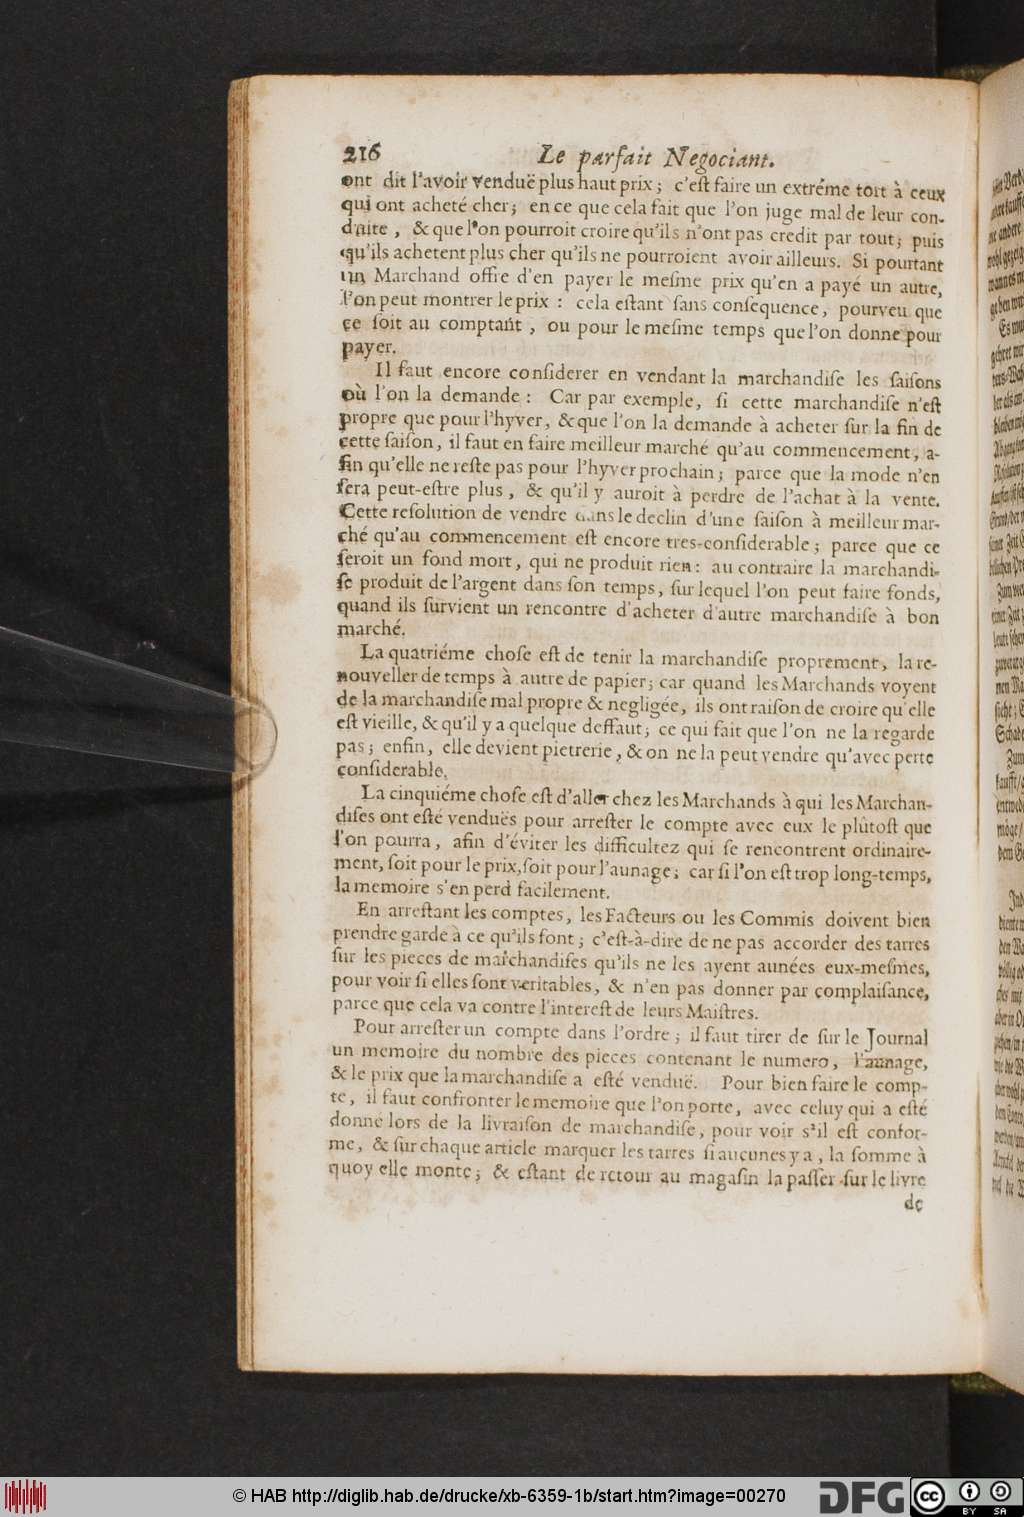 216 Le parfait Negociant.
ont dit l'avoir venduë plus haut prix ; c'eſt faire un extréme tort à ceux
qui ont acheté cher ; en ce que cela fait que l'on juge mal de leur con-
duite , & que l'on pourroit croire qu'ils n'ont pas credit par tout ; puis
qu'ils achetent plus cher qu'ils ne pourroient avoir ailleurs. Si pourtant
un Marchand offre d'en payer le meſme prix qu'en a payé un autre,
l'on peut montrer le prix : cela eſtant ſans conſequence, pourveu que
ce ſoit au comptant , ou pour le meſme temps que l'on donne pour
payer.
Il faut encore conſiderer en vendant la marchandiſe les ſaiſons
où l'on la demande : Car par exemple, ſi cette marchandiſe n'eſt
propre que pour l'hyver, & que l'on la demande à acheter ſur la fin de
cette ſaiſon, il faut en faire meilleur marché qu'au commencement, a-
fin qu'elle ne reſte pas pour l'hyver prochain ; parce que la mode n'en
ſera peut-eſtre plus , & qu'il y auroit à perdre de l'achat à la vente.
Cette reſolution de vendre dans le declin d'une ſaiſon à meilleur mar-
ché qu'au commencement eſt encore tres-conſiderable ; parce que ce
ſeroit un fond mort, qui ne produit rien : au contraire la marchandi-
ſe produit de l'argent dans ſon temps, ſur lequel l'on peut faire fonds,
quand ils ſurvient un rencontre d'acheter d'autre marchandiſe à bon
marché.
La quatriéme choſe eſt de tenir la marchandiſe proprement, la re-
nouveller de temps à autre de papier ; car quand les Marchands voyent
de la marchandiſe mal propre & negligée, ils ont raiſon de croire qu'elle
eſt vieille, & qu'il y a quelque deffaut ; ce qui fait que l'on ne la regarde
pas ; enfin, elle devient pietrerie , & on ne la peut vendre qu'avec perte
conſiderable.
La cinquiéme choſe eſt d'aller chez les Marchands à qui les Marchan-
diſes ont eſté venduës pour arreſter le compte avec eux le plûtoſt que
l'on pourra, afin d'éviter les difficultez qui ſe rencontrent ordinaire-
ment, ſoit pour le prix, ſoit pour l'aunage ; car ſi l'on eſt trop long-temps,
la memoire s'en perd facilement.
En arreſtant les comptes, les Facteurs ou les Commis doivent bien
prendre garde à ce qu'ils font ; c'eſt-à-dire de ne pas accorder des tarres
ſur les pieces de marchandiſes qu'ils ne les ayent aunées eux-meſmes,
pour voir ſi elles ſont veritables, & n'en pas donner par complaiſance,
parce que cela va contre l'intereſt de leurs Maiſtres.
Pour arreſter un compte dans l'ordre ; il faut tirer de ſur le Journal
un memoire du nombre des pieces contenant le numero, l'aunage,
& le prix que la marchandiſe a eſté venduë. Pour bien faire le comp-
te, il faut confronter le memoire que l'on porte, avec celuy qui a eſté
donné lors de la livraiſon de marchandiſe, pour voir s'il eſt confor-
me, & ſur chaque article marquer les tarres ſi aucunes y a , la ſomme à
quoy elle monte ; & eſtant de retour au magaſin la paſſer ſur le livre
de
© HAB http://diglib.hab.de/drucke/xb-6359-1b/start.htm?image=00270
DFG
cc BY SA